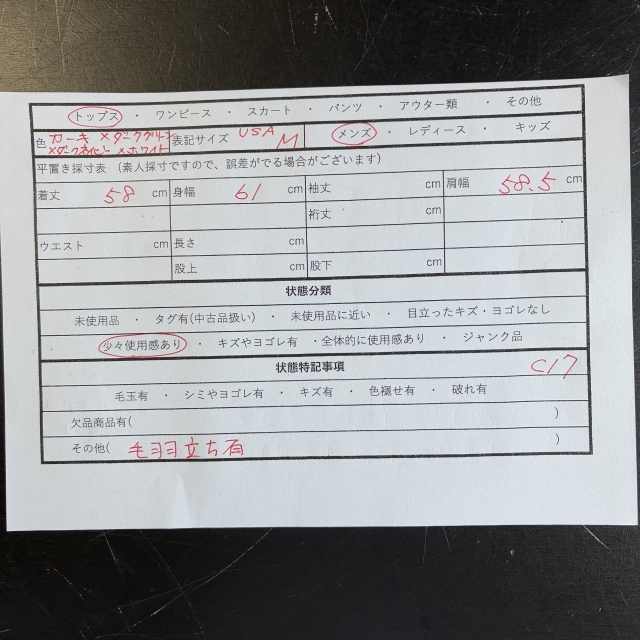 トップス ・ ワンピース ・ スカート ・ パンツ ・ アウター類 ・ その他
色 カーキ×ダークグリーン ×ダークネイビー×ホワイト 表記サイズ USA M メンズ ・ レディース ・ キッズ
平置き採寸表(素人採寸ですので、誤差がでる場合がございます)
着丈 58 cm 身幅 61 cm 袖丈 cm 肩幅 58.5 cm
裄丈 cm
ウエスト cm 長さ cm
股上 cm 股下 cm
状態分類
未使用品 ・ タグ有(中古品扱い) ・ 未使用品に近い ・ 目立ったキズ・ヨゴレなし
少々使用感あり ・ キズやヨゴレ有 ・全体的に使用感あり ・ ジャンク品
状態特記事項 C17
毛玉有 ・ シミやヨゴレ有 ・ キズ有 ・ 色褪せ有 ・ 破れ有
欠品商品有( )
その他( 毛羽立ち有 )